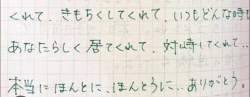 くれて、きもちくしてくれて、いつもどんな時も
あなたらしく居てくれて、対峙してくれて‥
本当にほんとに、ほんとうに‥ありがとう。